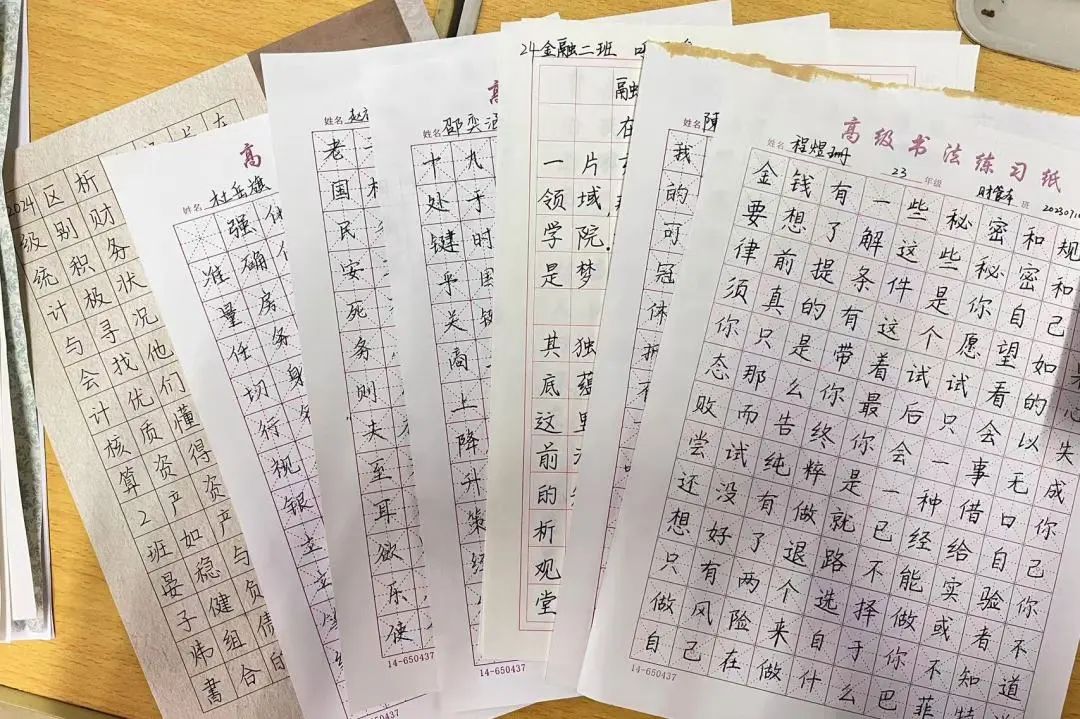 析财务状况他们懂得资产与负债的
区别积极寻找优质资产如稳健组合
2024级统计与会计核算2班晏子炜書
高
姓名 杜岳旗
强
准确
量房
任务
切身
行
视
银
姓名 赵
老
国
民
安
死
务
则
夫
至
耳
欲
乐
使
14-650437
高
姓名 邵奕涵
十九
处于
键时
乎国
关
商
上
降
升
策
经
14-650437
24金融二班
融
在
一片
领域,
学院.
是梦
其独
底蕴
这里
前
的
析
观
堂
姓名 陳
我
的
可
冠
体
高级书法练习纸
姓名 程煜珊 23 年级 财管本 班
金钱有一些秘密和规
要想了解这些秘密和
律前提条件是你自己
须真的有这个愿望如
你只是带着试试看的
态那么你最后只会以失
败而告终你会一事无成
尝试纯粹是一种借口你
还没有做就已经给自己
想好了退路不能实验你
只有两个选择做或者不
做风险来自于你不知道
自己在做什么巴菲特
14-650437